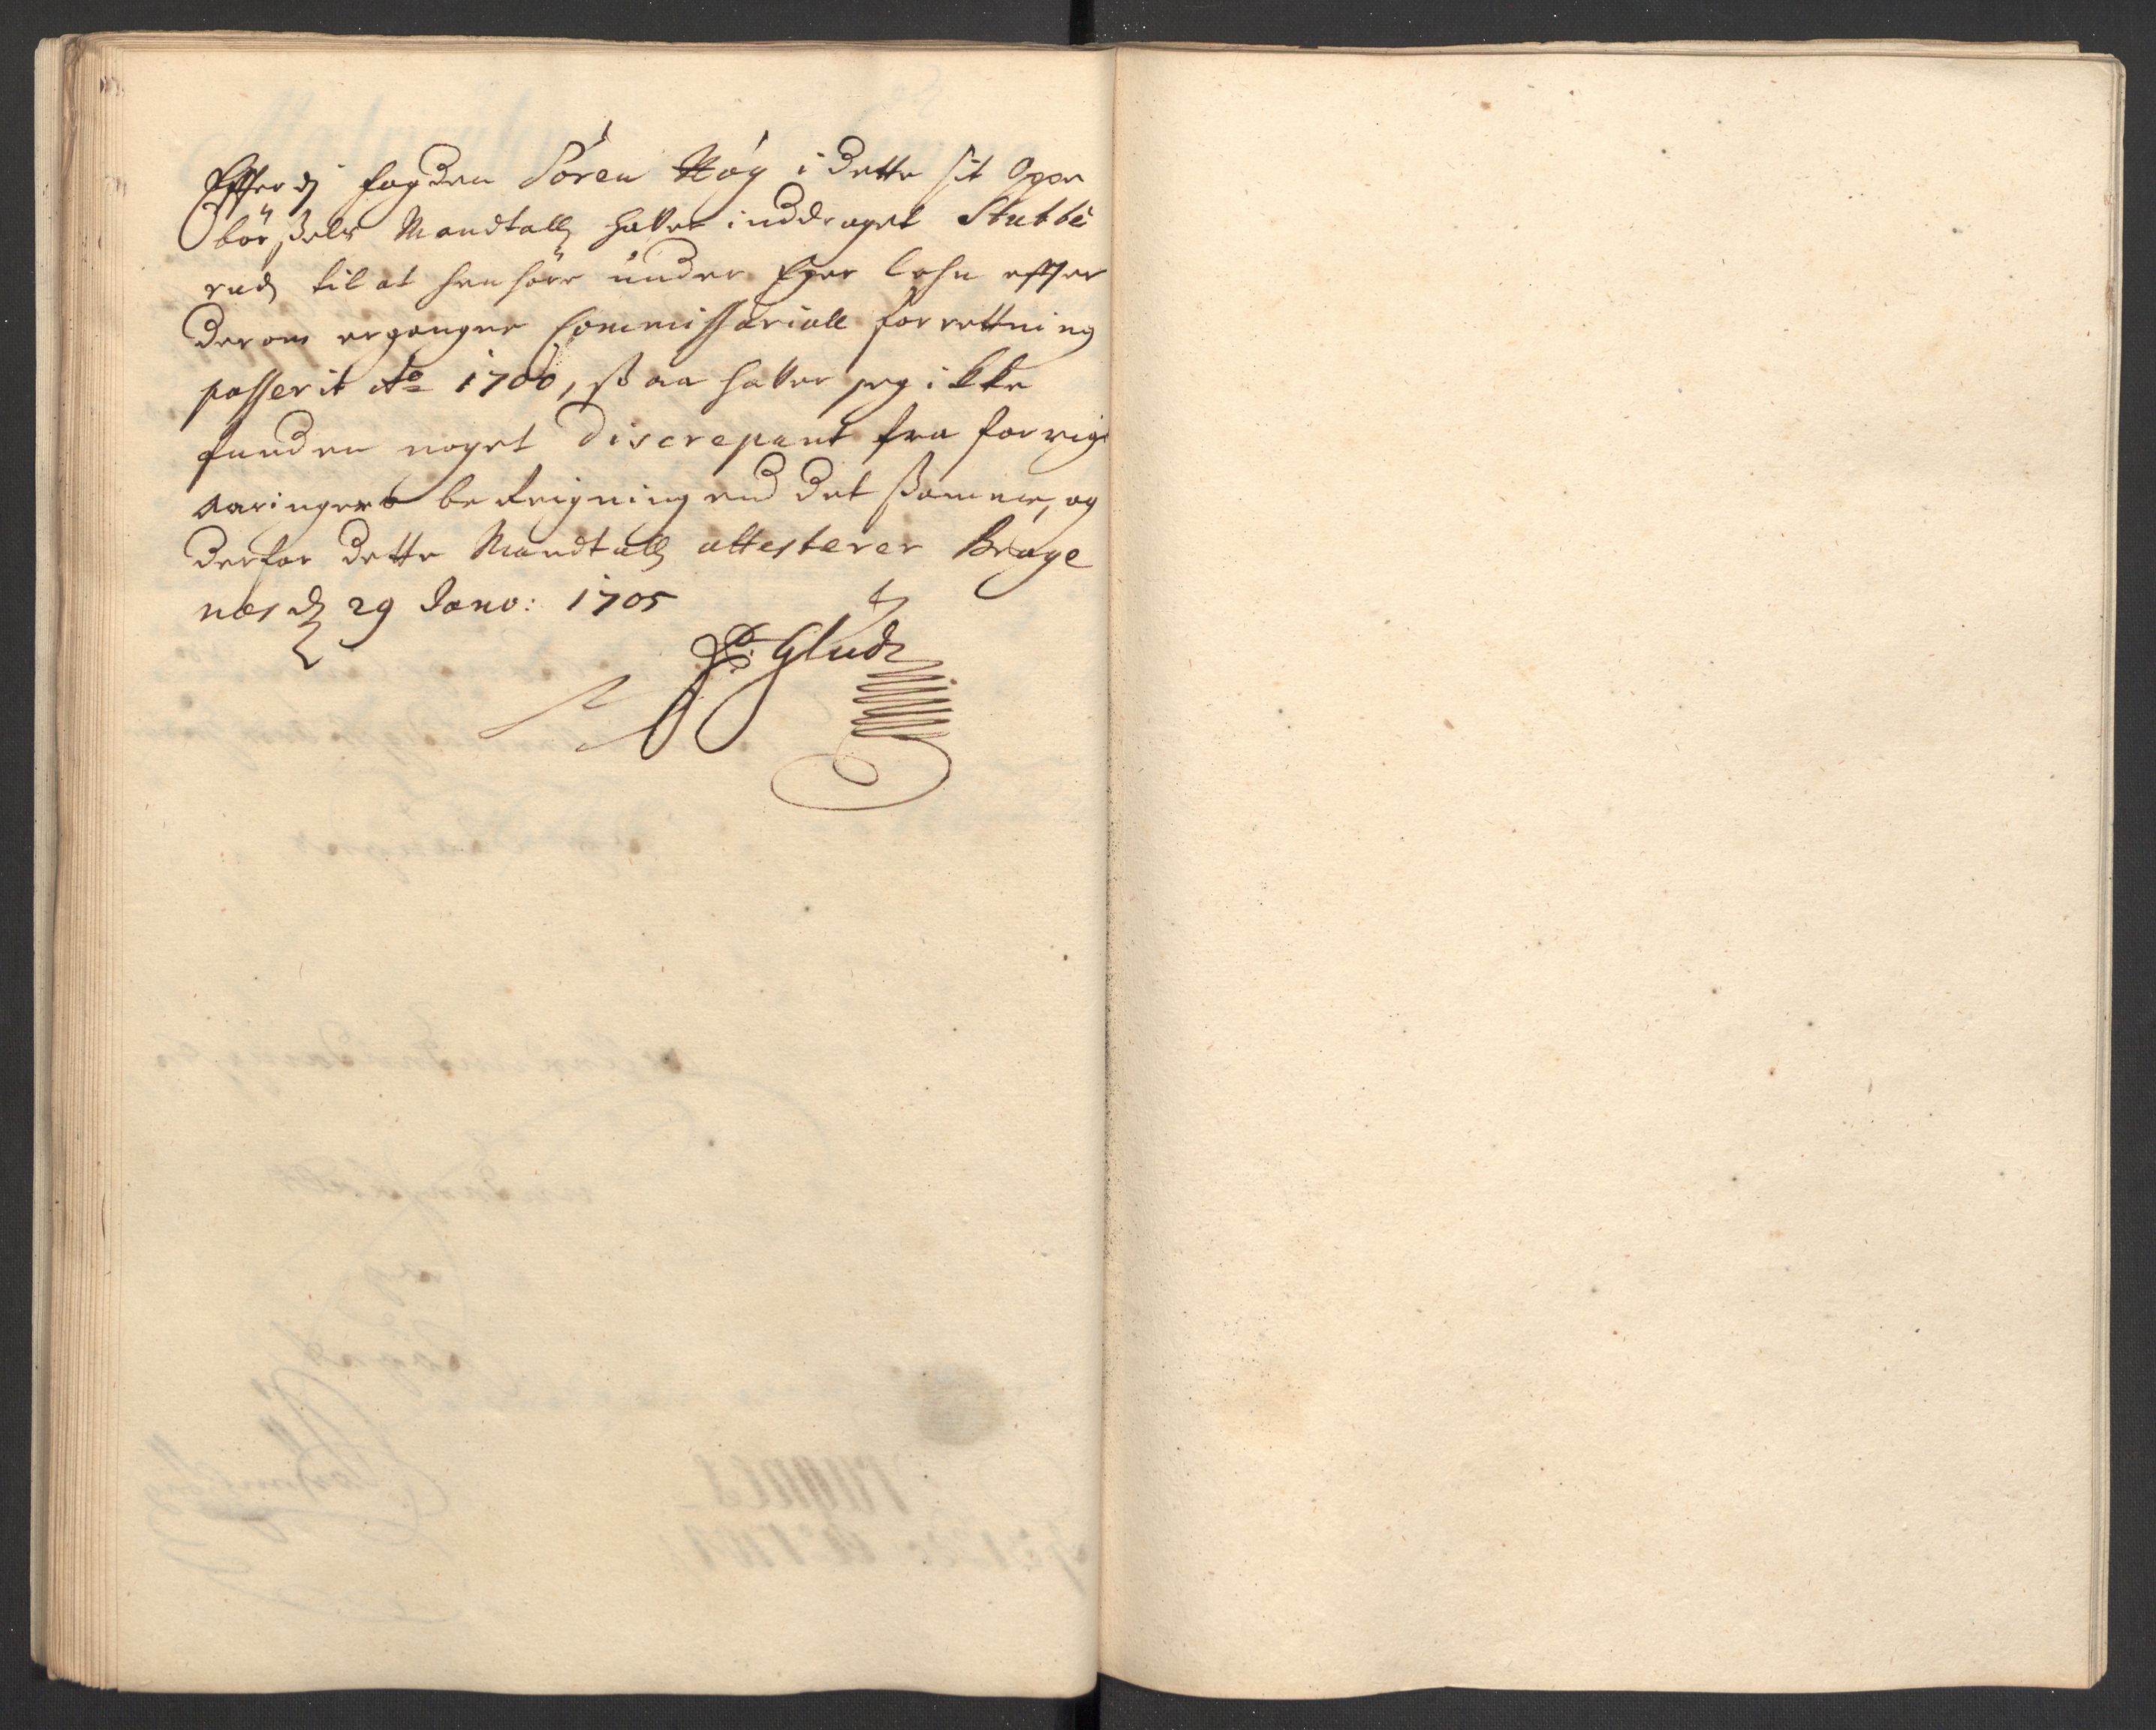 Efterdj fogden Sören Høg i dette sit Oppe
börßels Mandtall hafver inddraget Stubbe
rud, til at henhöre under Eger lehn efter
derom ergangne Commissariall forrettning
passerit Ao 1700, ßaa hafver jeg ikke
funden noget Discrepant fra forrige
aaringers bereigning end det ßamme, og
derfor dette Mandtall attesterer Brage
nes d 29 Janv: 1705
Glud